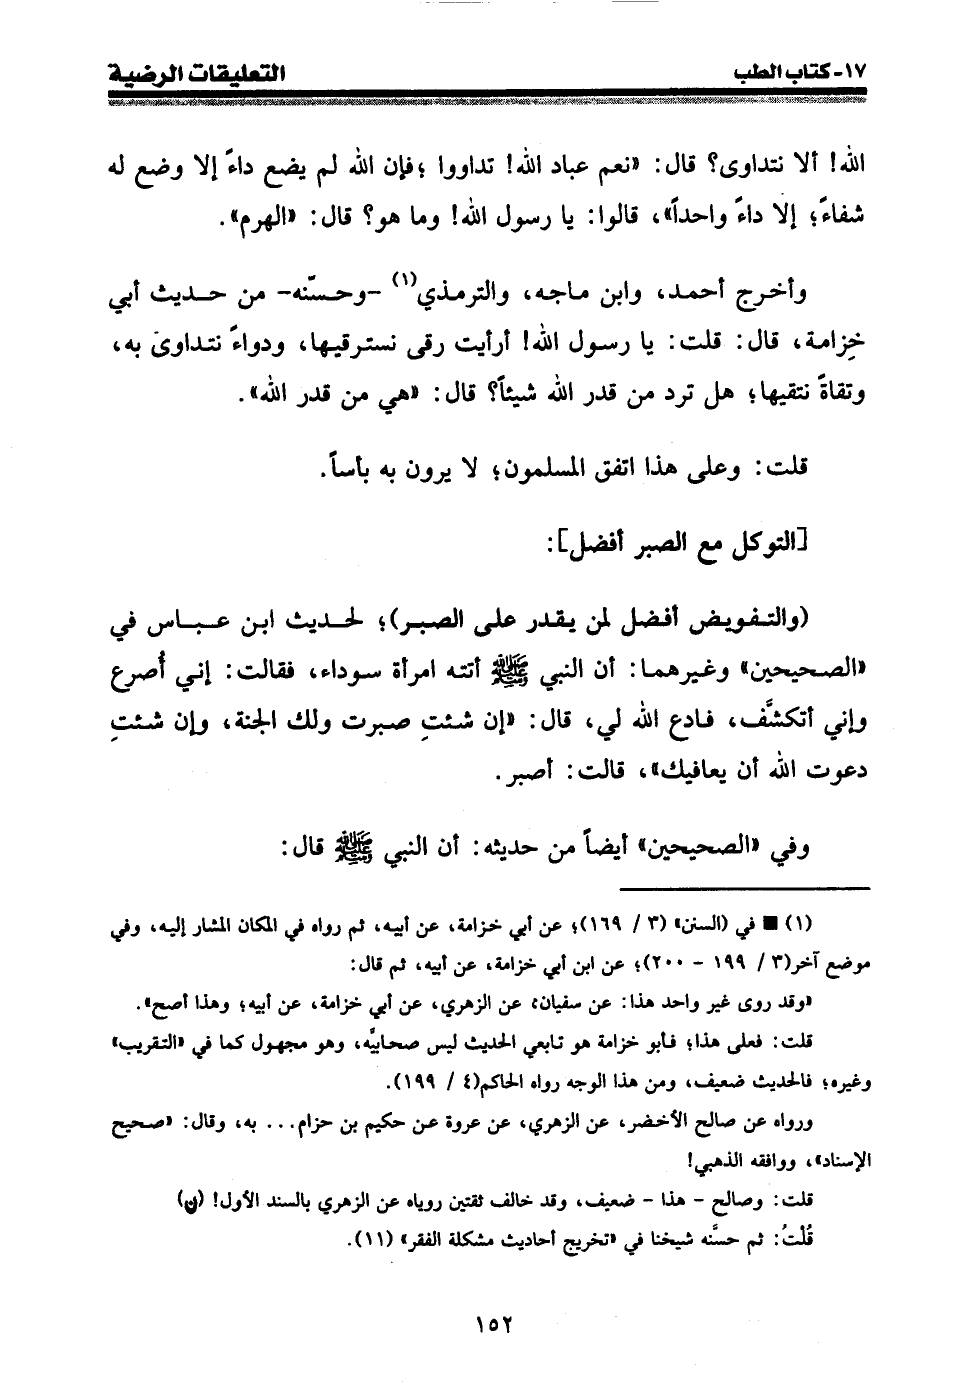 ١٧- كتاب الطب
التعليقات الرضية
الله! ألا نتداوى؟ قال: «نعم عباد الله! تداووا ؛فإن الله لم يضع داءً إلا وضع له
شفاءً؛ إلا داءً واحداً»، قالوا: يا رسول الله! وما هو؟ قال: «الهرم».
وأخرج أحمد، وابن ماجه، والترمذي(١) -وحسّنه- من حديث أبي
خِزامة، قال: قلت: يا رسول الله! أرأيت رقى نسترقيها، ودواءً نتداوىَ به،
وتقاةً نتقيها؛ هل ترد من قدر الله شيئاً؟ قال: «هي من قدر الله».
قلت: وعلى هذا اتفق المسلمون؛ لا يرون به بأساً.
[التوكل مع الصبر أفضل]:
(والتفويض أفضل لمن يقدر على الصبر)؛ لحديث ابن عباس في
«الصحيحين» وغيرهما: أن النبي ﷺ أتته امرأة سوداء، فقالت: إني أُصرع
وإني أتكشَّف، فادع الله لي، قال: «إن شئتِ صبرت ولك الجنة، وإن شئتِ
دعوت الله أن يعافيك»، قالت: أصبر.
وفي «الصحيحين» أيضاً من حديثه: أن النبي ﷺ قال:
(١) ■ في (السنن» (٣ / ١٦٩)؛ عن أبي خزامة، عن أبيه، ثم رواه في المكان المشار إليه، وفي
موضع آخر(٣ / ١٩٩ - ٢٠٠)؛ عن ابن أبي خزامة، عن أبيه، ثم قال:
«وقد روى غير واحد هذا: عن سفيان؛ عن الزهري، عن أبي خزامة، عن أبيه؛ وهذا أصح».
قلت: فعلى هذا؛ فأبو خزامة هو تابعي الحديث ليس صحابيَّه، وهو مجهول كما في «التقريب»
وغيره؛ فالحديث ضعيف، ومن هذا الوجه رواه الحاكم(٤ / ١٩٩).
ورواه عن صالح الأخضر، عن الزهري، عن عروة عن حكيم بن حزام... به، وقال: «صحيح
الإسناد»، ووافقه الذهبي!
قلت: وصالح - هذا - ضعيف، وقد خالف ثقتين روياه عن الزهري بالسند الأول! (ن)
قُلْتُ: ثم حسَّنه شيخنا في «تخريج أحاديث مشكلة الفقر» (١١).
١٥٢